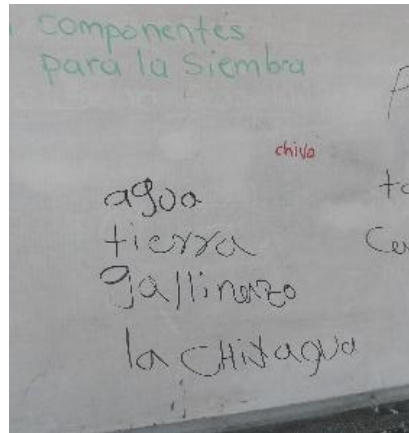 componentes
para la Siembra
chivo
agua
tierra
gallinazo
la CHixagua